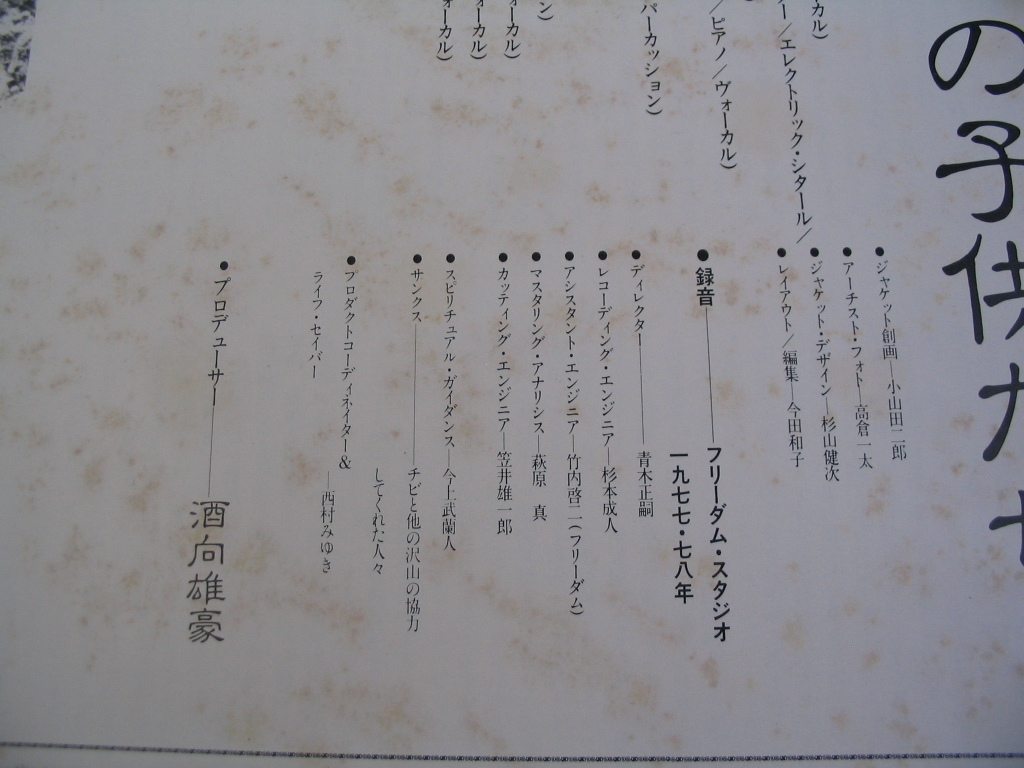 の子供たち
ーカル)
ー/エレクトリック・シタール/
/ピアノ/ヴォーカル)
パーカッション)
ン)
ォーカル)
ォーカル)
ォーカル)
●ジャケット創画―小山田二郎
●アーチスト・フォト―高倉一太
●ジャケット・デザイン―杉山健次
●レイアウト/編集―今田和子
●録音―フリーダム・スタジオ
一九七七・七八年
●ディレクター―青木正嗣
●レコーディング・エンジニア―杉本成人
●アシスタント・エンジニア―竹内啓二(フリーダム)
●マスタリング・アナリシス―萩原 真
●カッティング・エンジニア―笠井雄一郎
●スピリチュアル・ガイダンス―今上武蘭人
●サンクス―チビと他の沢山の協力
してくれた人々
●プロダクトコーディネイター&
ライフ・セイバー―西村みゆき
●プロデューサー―酒向雄豪